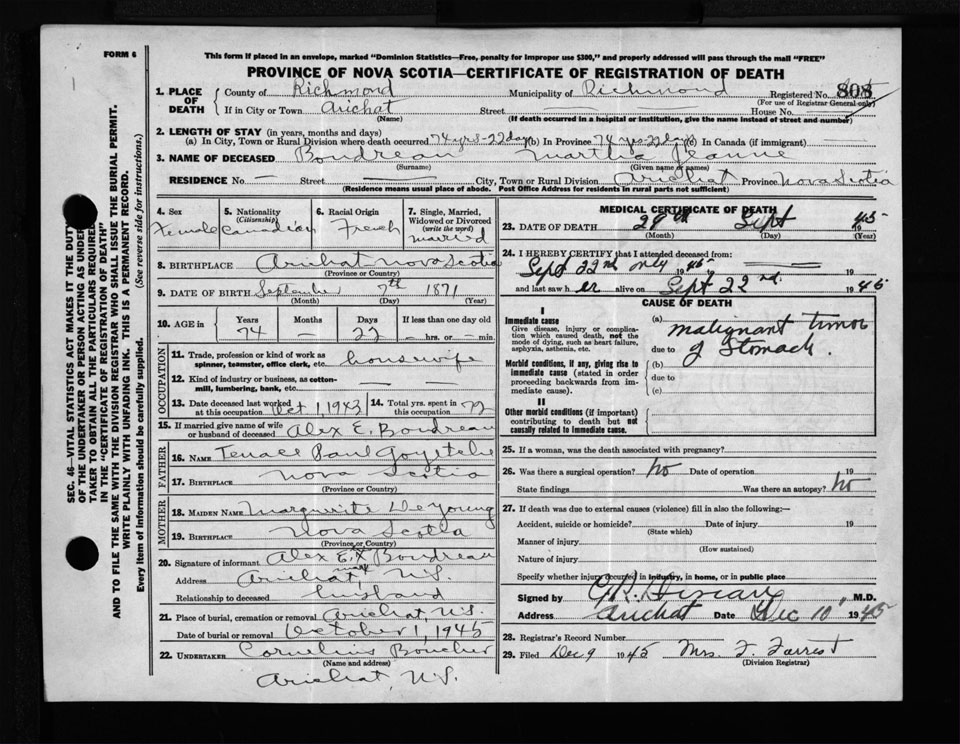 FORM 6
This form if placed in an envelope, marked "Dominion Statistics—Free, penalty for improper use $300," and properly addressed will pass through the mail "FREE"
PROVINCE OF NOVA SCOTIA—CERTIFICATE OF REGISTRATION OF DEATH
1. PLACE OF DEATH County of Richmond Municipality of Richmond Registered No. 808
(For use of Registrar General only)
If in City or Town Arichat Street House No.
(Name) (If death occurred in a hospital or institution, give the name instead of street and number)
2. LENGTH OF STAY (in years, months and days)
(a) In City, Town or Rural Division where death occurred 74 yrs-22 days (b) In Province 74 yrs 22 days (c) In Canada (if immigrant) —
3. NAME OF DECEASED Boudreau Martha Jeanne
(Surname) (Given name or names)
RESIDENCE No. — Street — City, Town or Rural Division Arichat Province Nova Scotia
(Residence means usual place of abode. Post Office Address for residents in rural parts not sufficient)
4. Sex 5. Nationality (Citizenship) 6. Racial Origin 7. Single, Married, Widowed or Divorced (write the word)
Female Canadian French Married
8. BIRTHPLACE Arichat Nova Scotia
(Province or Country)
9. DATE OF BIRTH September 7th 1871
(Month) (Day) (Year)
10. AGE in Years Months Days If less than one day old
74 22 — hrs. or — min.
OCCUPATION
11. Trade, profession or kind of work as spinner, teamster, office clerk, etc. housewife
12. Kind of industry or business, as cotton-mill, lumbering, bank, etc. — —
13. Date deceased last worked at this occupation Oct 1, 1943 14. Total yrs. spent in this occupation
15. If married give name of wife or husband of deceased Alex E. Boudreau
FATHER
16. NAME Paul
17. BIRTHPLACE Nova Scotia
(Province or Country)
MOTHER
18. MAIDEN NAME Marguerite DeYoung
19. BIRTHPLACE Nova Scotia
(Province or Country)
20. Signature of informant Alex E. X Boudreau
mark
Address Arichat, N.S.
Relationship to deceased husband
21. Place of burial, cremation or removal Arichat N.S.
Date of burial or removal October 1, 1945
22. UNDERTAKER Cornelius Boucher
(Name and address)
Arichat, N.S.
MEDICAL CERTIFICATE OF DEATH
23. DATE OF DEATH 28th Sept 1945
(Month) (Day) (Year)
24. I HEREBY CERTIFY that I attended deceased from:
Sept 22nd only 1945 — 19
and last saw her alive on Sept 22nd. 1945
CAUSE OF DEATH
I
Immediate cause
Give disease, injury or complication which caused death, not the mode of dying, such as heart failure, asphyxia, asthenia, etc.
(a) malignant tumor
due to of Stomach.
Morbid conditions, if any, giving rise to immediate cause (stated in order proceeding backwards from immediate cause).
(b)
due to
(c)
II
Other morbid conditions (if important) contributing to death but not causally related to immediate cause.
25. If a woman, was the death associated with pregnancy?
26. Was there a surgical operation? No Date of operation 19
State findings Was there an autopsy? No
27. If death was due to external causes (violence) fill in also the following:—
Accident, suicide or homicide? Date of injury 19
(State which)
Manner of injury
(How sustained)
Nature of injury
Specify whether injury occurred in industry, in home, or in public place
Signed by M.D.
Address Arichat Date Dec 10" 1945
28. Registrar's Record Number
29. Filed Dec 9 1945 Mrs. F. Forrest
(Division Registrar)
SEC. 46—VITAL STATISTICS ACT MAKES IT THE DUTY
OF THE UNDERTAKER OR PERSON ACTING AS UNDER-
TAKER TO OBTAIN ALL THE PARTICULARS REQUIRED
IN THE "CERTIFICATE OF REGISTRATION OF DEATH"
AND TO FILE THE SAME WITH THE DIVISION REGISTRAR WHO SHALL ISSUE THE BURIAL PERMIT.
WRITE PLAINLY WITH UNFADING INK. THIS IS A PERMANENT RECORD.
Every item of information should be carefully supplied. (See reverse side for instructions.)